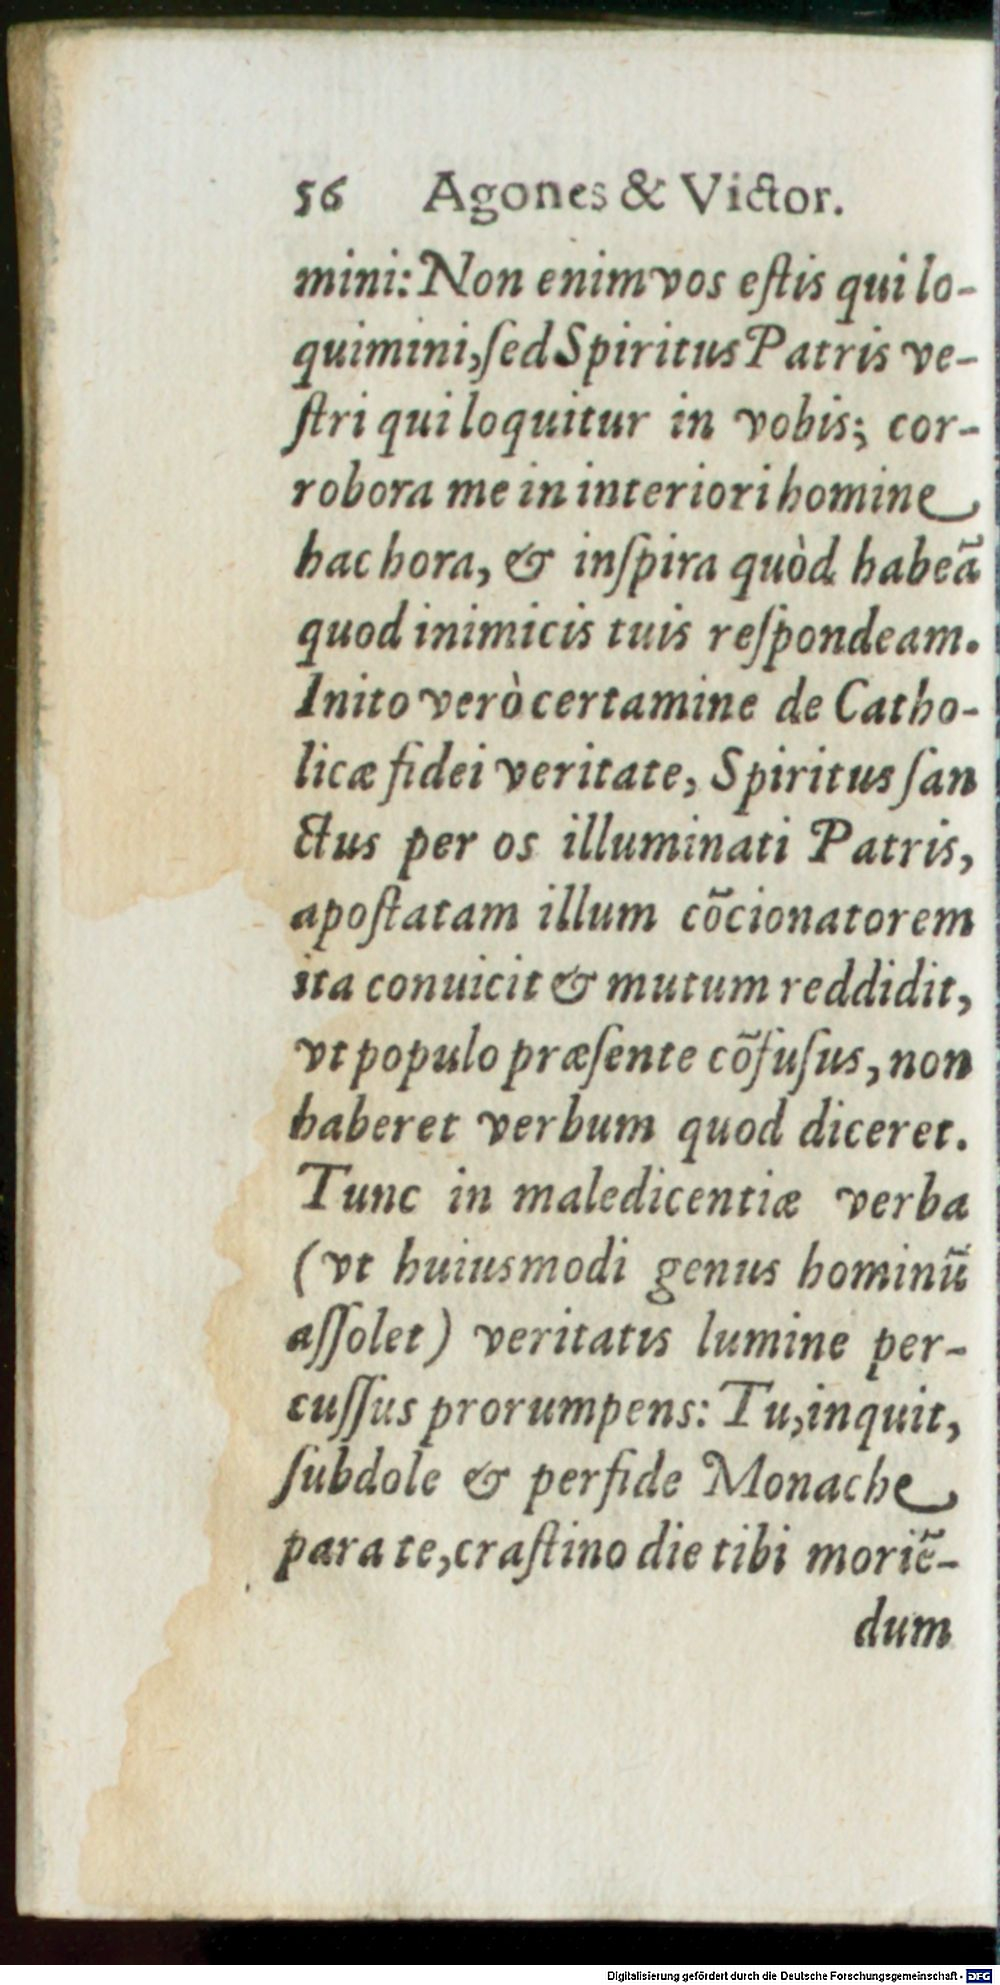 56 Agones & Victor.
mini: Non enim vos eſtis qui lo-
quimini, ſed Spiritus Patris ve-
ſtri qui loquitur in vobis; cor-
robora me in interiori homine
hac hora, & inſpira quòd habeã
quod inimicis tuis reſpondeam.
Inito verò certamine de Catho-
licæ fidei veritate, Spiritus ſan
ctus per os illuminati Patris,
apoſtatam illum cõcionatorem
ita conuicit & mutum reddidit,
vt populo præſente cõfuſus, non
haberet verbum quod diceret.
Tunc in maledicentiæ verba
(vt huiusmodi genus hominũ
aſſolet) veritatis lumine per-
cuſſus prorumpens: Tu, inquit,
ſubdole & perfide Monache
para te, craſtino die tibi moriẽ-
dum
Digitalisierung gefördert durch die Deutsche Forschungsgemeinschaft - DFG